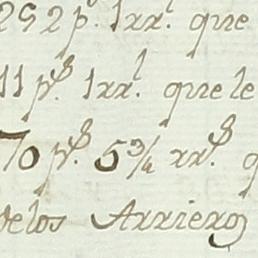 252 p.s 1 rr.l que
11 p.s 1 rr.l que le
70 p.s 5 3/4 rr.s q
delos Arrieros